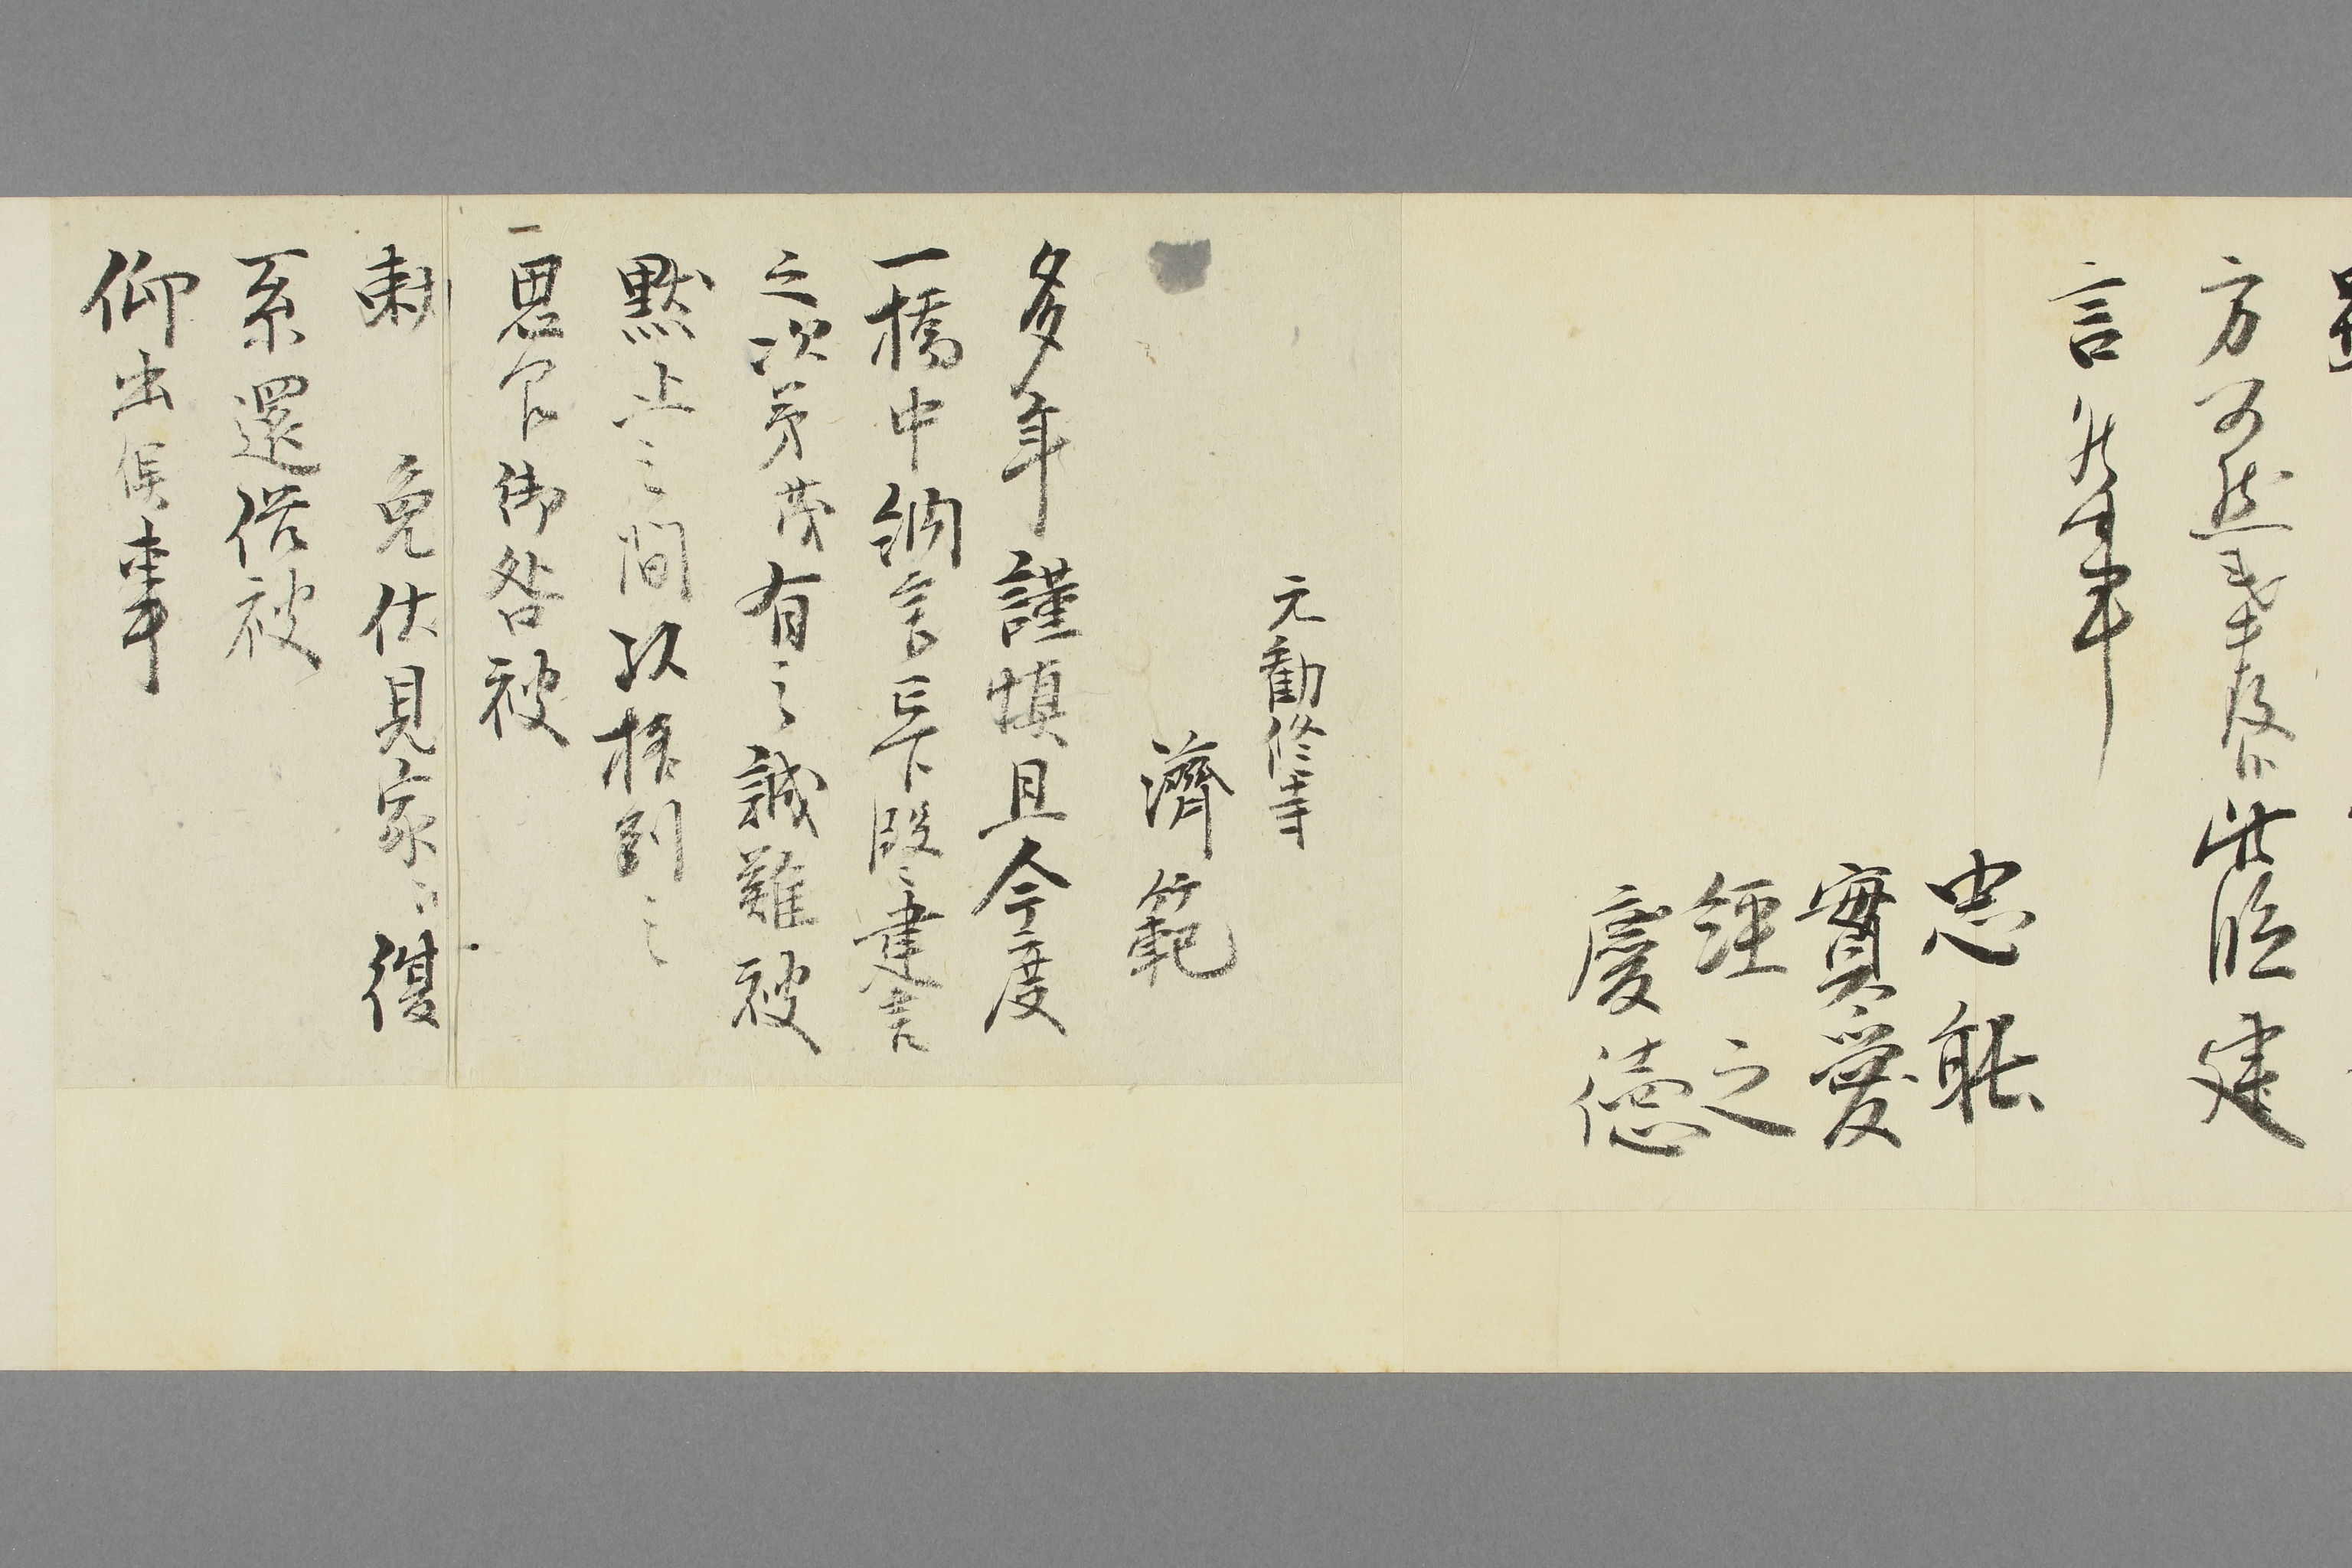 方可然哉奉存候此段建
言仕候事
忠能
實愛
經之
慶徳
元勸修寺
濟範
多年謹慎且今度
一橋中納言已下段々建言
之次第茂有之誠難被
黙止之間以格別之
思召御咎被
勅 免伏見家江復
系還俗被
仰出候事